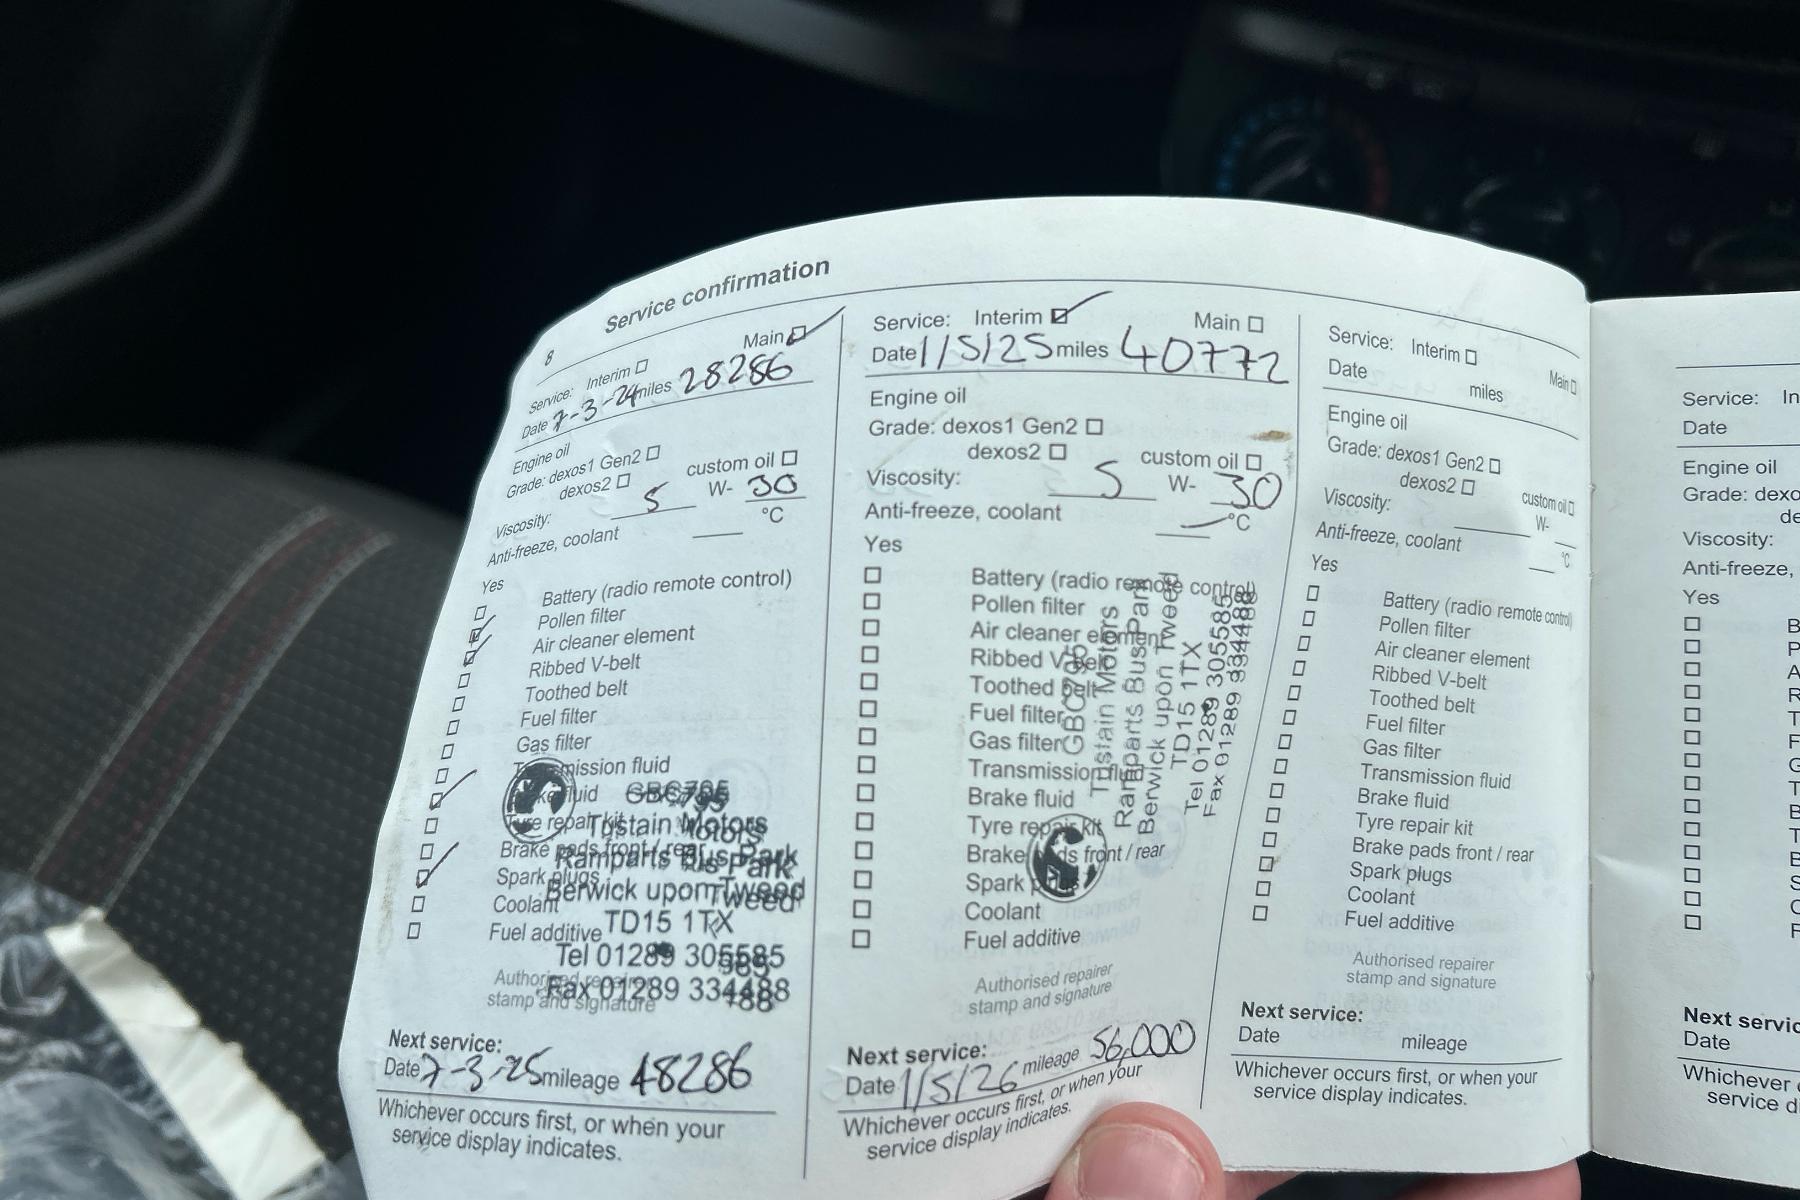 8
Service confirmation
Service: Interim Main
Date 7-3-24 miles 28286
Engine oil
Grade: dexos1 Gen2
dexos2 custom oil
Viscosity: 5 W- 30
Anti-freeze, coolant °C
Yes
Battery (radio remote control)
Pollen filter
Air cleaner element
Ribbed V-belt
Toothed belt
Fuel filter
Gas filter
Transmission fluid
Brake fluid
Tyre repair kit
Brake pads front / rear
Spark plugs
Coolant
Fuel additive
GBC795
Tustain Motors
Ramparts Bus Park
Berwick upon Tweed
TD15 1TX
Tel 01289 305585
Fax 01289 334488
Authorised repairer
stamp and signature
Next service:
Date 7-3-25 mileage 48286
Whichever occurs first, or when your
service display indicates.
Service: Interim Main
Date 1/5/25 miles 40772
Engine oil
Grade: dexos1 Gen2
dexos2 custom oil
Viscosity: 5 W- 30
Anti-freeze, coolant °C
Yes
Battery (radio remote control)
Pollen filter
Air cleaner element
Ribbed V-belt
Toothed belt
Fuel filter
Gas filter
Transmission fluid
Brake fluid
Tyre repair kit
Brake pads front / rear
Spark plugs
Coolant
Fuel additive
GBC795
Tustain Motors
Ramparts Bus Park
Berwick upon Tweed
TD15 1TX
Tel 01289 305585
Fax 01289 334488
Authorised repairer
stamp and signature
Next service:
Date 1/5/26 mileage 56,000
Whichever occurs first, or when your
service display indicates.
Service: Interim Main
Date miles
Engine oil
Grade: dexos1 Gen2
dexos2 custom oil
Viscosity: W-
Anti-freeze, coolant °C
Yes
Battery (radio remote control)
Pollen filter
Air cleaner element
Ribbed V-belt
Toothed belt
Fuel filter
Gas filter
Transmission fluid
Brake fluid
Tyre repair kit
Brake pads front / rear
Spark plugs
Coolant
Fuel additive
Authorised repairer
stamp and signature
Next service:
Date mileage
Whichever occurs first, or when your
service display indicates.
Service: In
Date
Engine oil
Grade: dexo
de
Viscosity:
Anti-freeze,
Yes
B
P
A
R
T
F
G
T
B
T
B
S
C
F
Next servic
Date
Whichever
service di